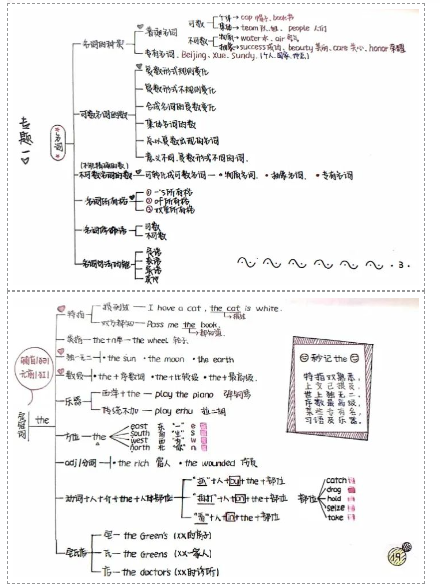 专题一
名词
名词的种类
普通名词
可数
个体→cap 帽子、book书
集体→team队、组、people 人们
不可数
物质→water 水、air 空气
抽象→success成功、beauty美丽、care关心、honor荣耀
专有名词、Beijing、Xue、Sunday、
可数名词的数
复数形式规则变化
复数形式不规则变化
合成名词的复数变化
集体名词的数
常以复数出现的名词
意义不同、复数形式不同的词.
不可数名词的数
可转化成可数名词
•物质名词.
•抽象名词.
•专有名词
名词所有格
①-'s所有格
②of所有格
③双重所有格
可数
不可数
.3.
定冠词
the
辅音前
元音前
特指
I have a cat, the cat is white.
双方都知
Pass me the book.
都知道
类指—the+n单—the wheel 轮子.
独一无二—•the sun •the moon •the earth
数级—•the+序数词 •the+比较级 •the+最高级.
乐器
西洋+the—play the piano 弹钢琴
传统不加—play erhu 拉二胡
方位—the
east 东 e
south 南 s
west 西 w
north 北 n
adj/分词—•the rich 富人 •the wounded 伤员
动词+人+介+the+人体部位
"抓"+人+by+the+部位
"打"+人+on+the+部位
+人+in+the+部位
部位
catch
drag
hold
seize
take
the Green's (XX的房子)
the Greens (XX一家人)
the doctor's (XX的诊所)
秒记 the
特指双熟悉,
上文已提及.
世上独无二,
序数最高级,
某些专有名,
习语及乐器.
19